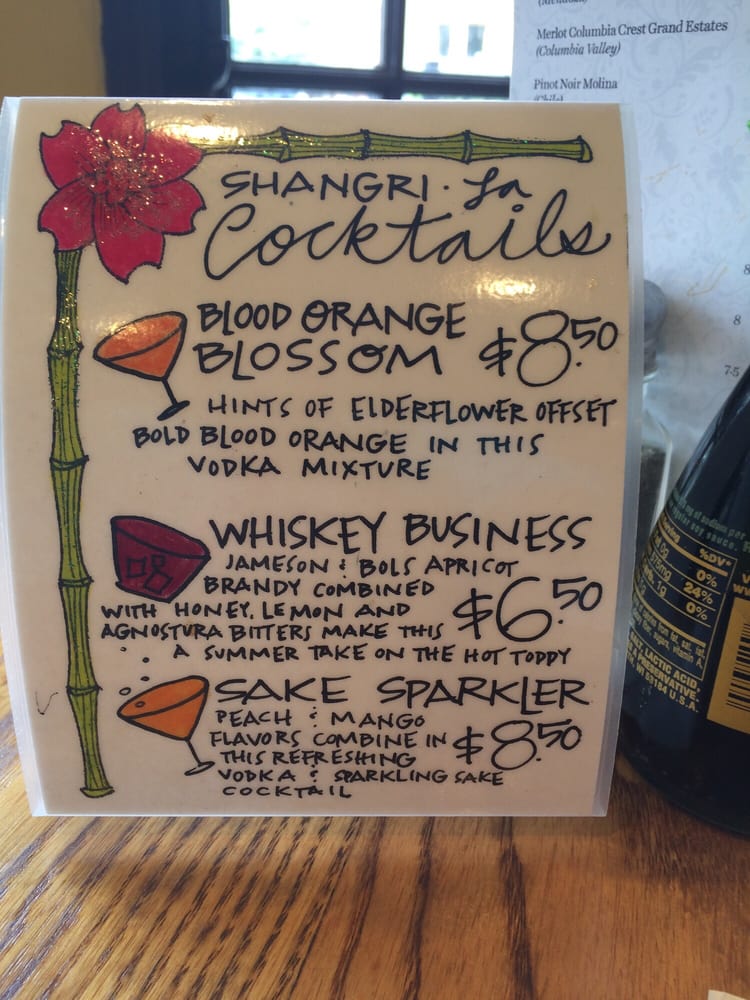 (Mendoza)
Merlot Columbia Crest Grand Estates
(Columbia Valley)
Pinot Noir Molina
(Chile)
SHANGRI · La
Cocktails
BLOOD ORANGE
BLOSSOM $8.50
HINTS OF ELDERFLOWER OFFSET
BOLD BLOOD ORANGE IN THIS
VODKA MIXTURE
WHISKEY BUSINESS
JAMESON & BOLS APRICOT
BRANDY COMBINED
WITH HONEY, LEMON AND $6.50
AGNOSTURA BITTERS MAKE THIS
A SUMMER TAKE ON THE HOT TODDY
SAKE SPARKLER
PEACH & MANGO
FLAVORS COMBINE IN $8.50
THIS REFRESHING
VODKA & SPARKLING SAKE
COCKTAIL
8
7.5
mg of sodium per
regular soy sauce.
%DV*
0g 0%
575mg 24%
1g 0%
LACTIC ACID
PRESERVATIVE
WI 53184 U.S.A.